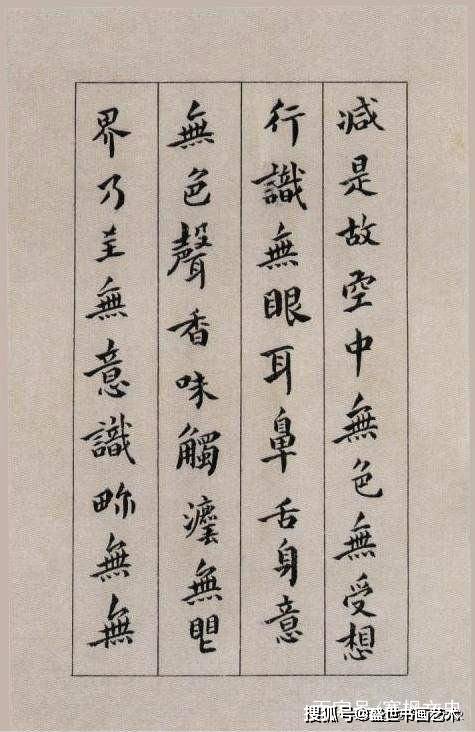 減是故空中無色無受想
行識無眼耳鼻舌身意
無色聲香味觸灋無眼
界乃至無意識畍無無
搜狐号@盛世书画艺术